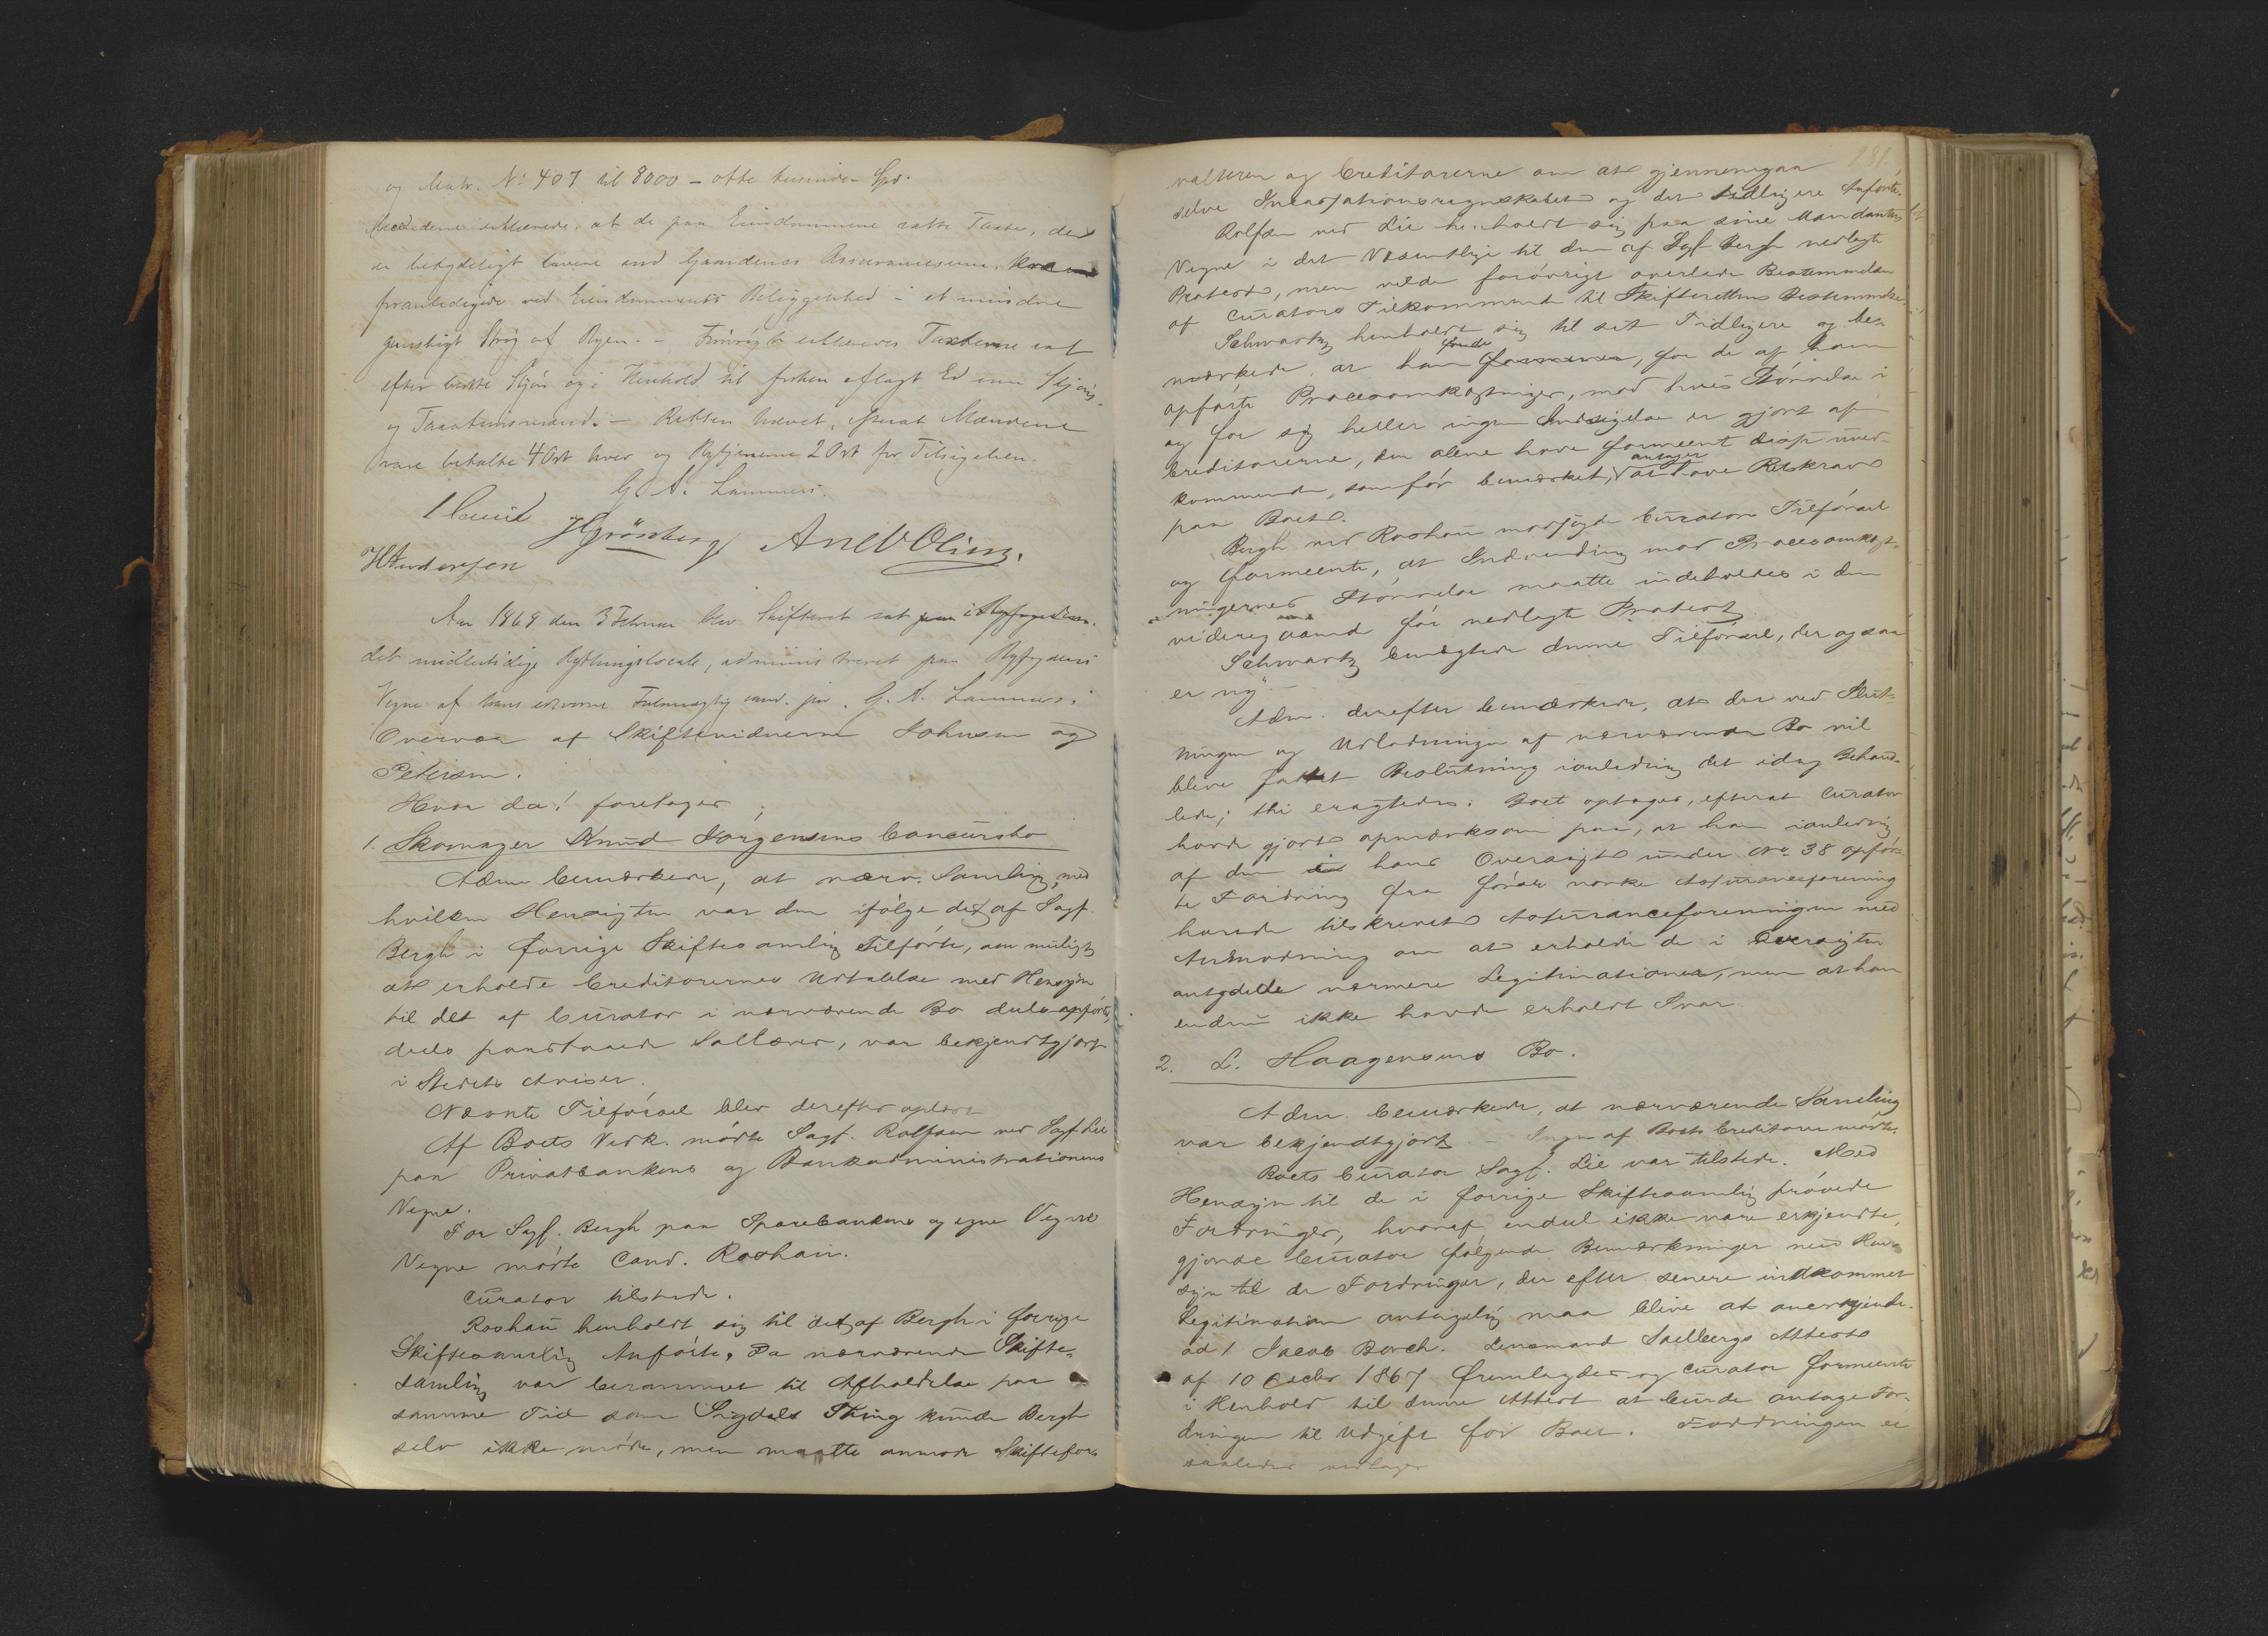 og Matr. No: 407 til 8000 – otte tusinde Spd.
Mændene erklærede, at de paa Eiendommene satte Taxter, der
er betydeligt lavere end Gaardenes Assurancesum,
foranledigede ved Eiendommens Beliggenhed i et mindre
gunstigt Strøg af Byen. – Forøvrigt erklæredes Taxterne sat
efter bedste Skjøn og i Henhold til forhen aflagt Ed som Skjøns-
og Taxationsmænd. – Retten hævet, efterat Mændene
vare betalte 4 Ort hver og Bytjeneren 2 Ort for Tilsigelsen.
G. A. Lammers.
HGrönberg
HAndersen
Aar 1869 den 3 Februar blev Skifteret sat i
det midlertidige Rythingslocale, administreret paa Byfogdens
Vegne af hans edsvorne Fuldmægtig cand. jur. G. A. Lammers i
Overvær af Skiftevidnerne Johnsen og
Petersen.
Hvor da! foretages;
1. Skomager Knud Jörgensens Concursbo
Adm. bemærkede, at nærv. Samling, med
hvilken Hensigten var den ifölge det af Sagf.
Bergh i forrige Skiftesamling Tilförte, om muligt
at erholde Creditorernes Udtalelse med Hensyn
til det af Curator i nærværende Bo deels opförte,
deels paastaaede Sallærer, var bekjendtgjort
i Stedets Aviser.
Nævnte Tilförsel blev derefter oplæst
Af Boets Vedk. mödte Sagf. Rolfsen ved Sagf. Lie
paa Privatbankens og Bankadministrationens
Vegne.
For Sagf. Bergh paa Sparebankens og egne Vegne
Vegne mödte Cand. Roshaü.
Curator tilstede.
Roshaü henholdt sig til det af Bergh i forrige
Skiftesamling Anförte. Da nærværende Skifte-
samling var berammet til Afholdelse paa
samme Tid som Sigdals Thing künde Bergh
selv ikke möde, men maatte anmode Skiftefor-
valteren og Creditorerne om at gjennemgaa
selve Incassationsregnskabet og det tidligere Anförte.
Rolfsen ved Lie henholdt sig paa sine Mandanters
Vegne i det Væsentlige til den af Sagf Bergh nedlagte
Protest, men vilde forövrigt overlade Bestemmelsen
af Curators Tilkommende til Skifterettens Bestemmelse.
Schwartz henholdt sig til sit Tidligere og be-
mærkede, at han, for de af ham
opförte Procesomkostninger, mod hvis Störrelse i
og for sig heller ingen Indsigelse er gjort af
Creditorerne, den alene have formeent disse uved-
kommende, som för bemærket, antager at have Retskrav
paa Boet.
Bergh ved Roshaü modsagde Curators Tilförsel
og formeente, at Indvending mod Procesomkost-
ningernes Störrelse maatte indeholdes i den
för nedlagte Protest
Schwartz benægtede denne Tilförsel, der ogsaa
er ny". –
Adm. derefter bemærkede, at der ved Slut-
ningen og Udlodningen af nærværende Bo vil
blive fattet Beslutning ianledning det idag Behand-
lede; thi eragtedes: Boet optages, efterat Curator
havde gjort opmærksom paa, at han ianledning
af den i hans Oversigt under No. 38 opför-
te Fordring fra förste norske Assuranceforening
havde tilskrevet Assuranceforeningen med
Anmodning om at erholde de i Oversigten
antydede nærmere Legitimationer, men at han
endnu ikke havde erholdt Svar
2. L. Haagensens Bo.
Adm. bemærkede, at nærværende Samling
var bekjendtgjort. – Ingen af Boets Creditorer mödte.
Boets Curator Sagf. Lie var tilstede. Med
Hensyn til de i forrige Skiftesamling prövede
Fordringer, hvoraf endeel ikke vare erkjendte,
gjorde Curator fölgende Bemærkninger med Hen-
syn til de Fordringer, der efter senere indkommet
Legitimation antagelig maa blive at anerkjende.
ad 1 Jacob Borch. Lensmand Sælbergs Attest
af 10 Decbr 1867 fremlagdes og Curator formeente
i Henhold til denne Attest at burde antage For-
dringen til Udgift for Boet. Fordringen er
saaledes vedtaget